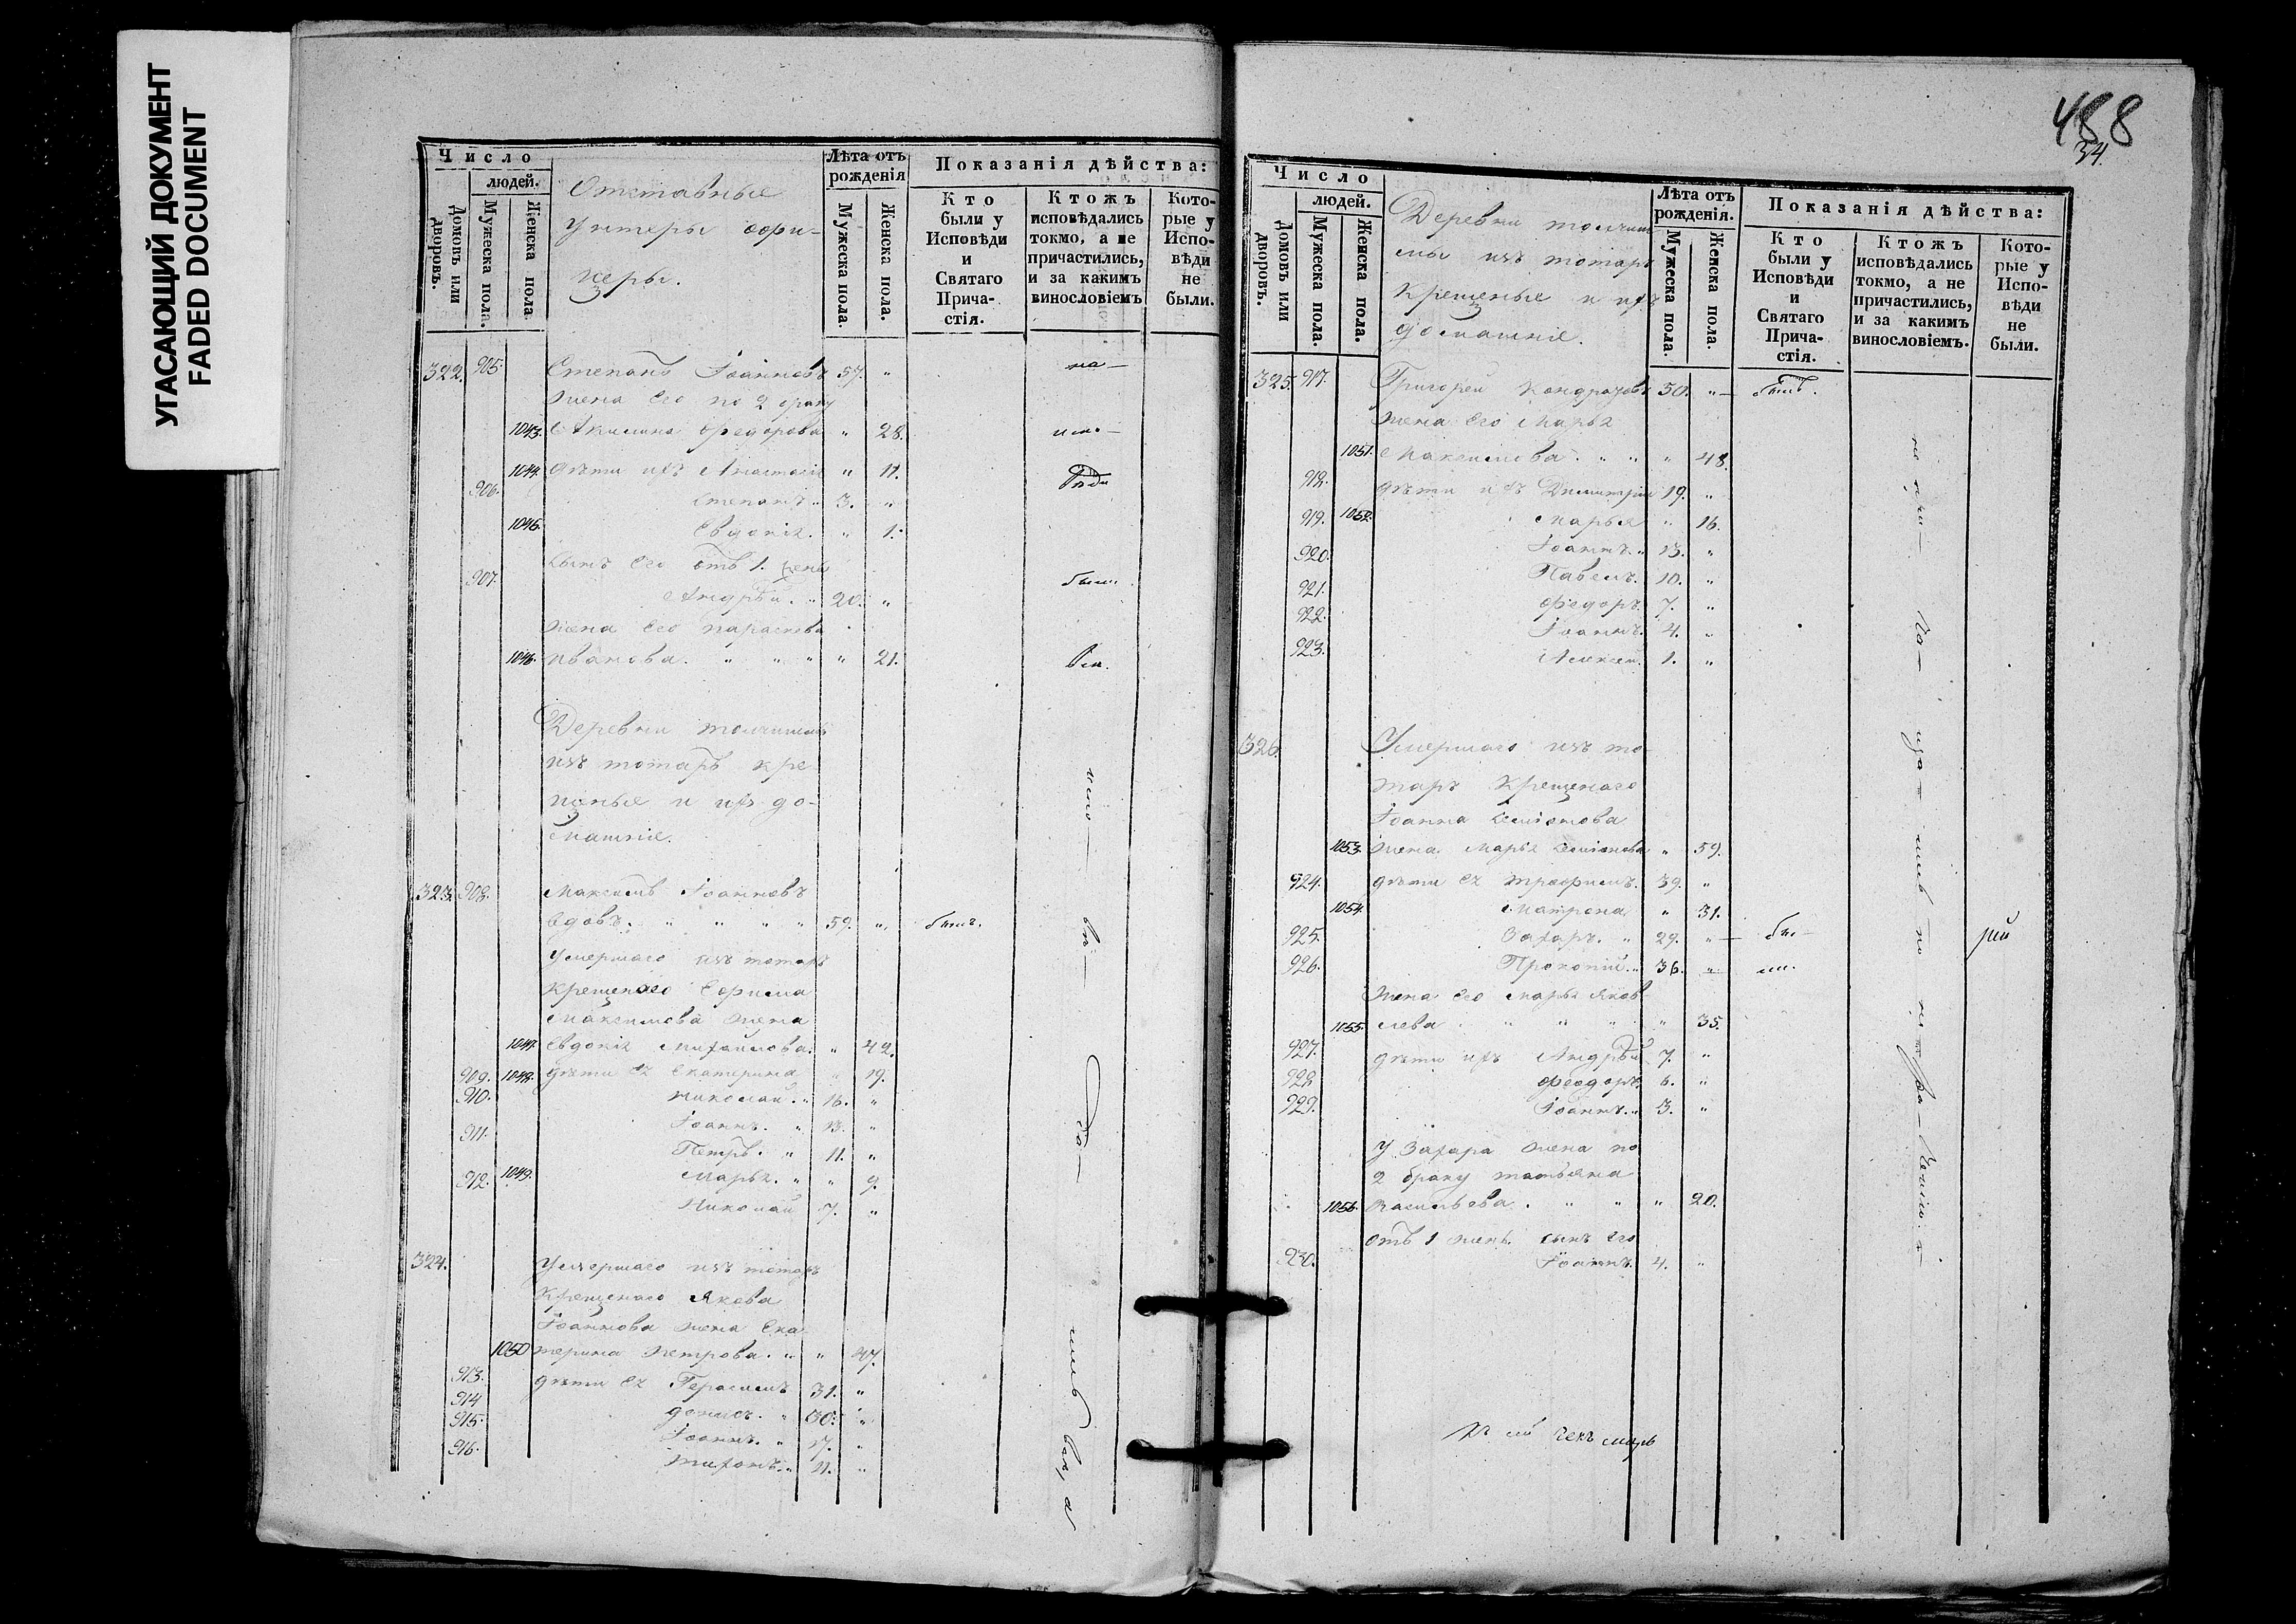 УГАСАЮЩИЙ ДОКУМЕНТ
FADED DOCUMENT
Число
людей.
Домовъ или дворовъ.
Мужеска пола.
Женска пола.
Отставные
Унтеры офи-
церы.
Лѣта отъ рожденія
Мужеска пола.
Женска пола.
Показанія дѣйства:
Кто были у Исповѣди и Святаго Прича- стія.
Ктожъ исповѣдались токмо, а не причастились, и за какимъ винословіемъ
Кото- рые у Испо- вѣди не были.
322. 905. Степанъ Іоанновъ 57. "
жена его по 2 браку
1043. Акилина Федорова " 28.
1044. дѣти ихъ Анастасія " 11.
906. Степанъ " 3. "
1045. Евдокія. " 1.
сынъ его отъ 1. жены
907. Андрей. " 20. "
жена его параскева
1046. иванова. " " " " 21.
Деревни
изъ тотаръ кре
щеные и ихъ до-
машніе.
323. 908. Максимъ Іоанновъ
вдовъ. " " " " 59. " былъ.
Умершаго изъ тотаръ
крещенаго Ефима
Максимова жена
1047. Евдокія Михайлова. " 42.
909. 1048. дѣти ея Екатерина " 19.
910. николай. " 16. "
911. Іоаннъ. " 13. "
Петръ. " 11. "
912. 1049. Марья. " " 9.
Николай 7. "
324. Умершаго изъ тотаръ
Крещенаго Якова
Іоаннова жена Ека
1050 терина Петрова. " " 47.
913. дѣти ея Герасимъ 31. "
914 денисъ. " 30. "
915. Іоаннъ. " 17. "
916. тихонъ. " 11. "
488
34.
Число
людей.
Домовъ или дворовъ.
Мужеска пола.
Женска пола.
Деревни
изъ тотаръ
Крещеные и ихъ
домашніе.
Лѣта отъ рожденія.
Мужеска пола.
Женска пола.
Показанія дѣйства:
Кто были у Исповѣди и Святаго Прича- стія.
Ктожъ исповѣдались токмо, а не причастились, и за какимъ винословіемъ.
Кото- рые у Испо- вѣди не были.
325. 917. Григорей Кондратовъ 50. " былъ.
жена его Марья
1051. Максимова. " " " 48.
918. дѣти ихъ Димитрій 19. "
919. 1052. Марья " 16.
920. Іоаннъ. " 13. "
921. Павелъ. 10. "
922. Федоръ. 7. "
Іоаннъ. 4. "
923. Алексей. 1. "
326. Умершаго изъ то
таръ Крещенаго
Іоанна Семіонова
1053. жена Марья Семіонова " 59.
924. дѣти ея Трофимъ. 39. "
1054. Матрона " 31.
925. Захаръ. " 29. "
926. Прокопій. " 36. "
жена его Марья Яков
1055. лева " " " " 35.
927. дѣти ихъ Андрей 7. "
928. Феодоръ 6. "
929. Іоаннъ. " 3. "
У Захара жена по
2 браку татьяна
1056. Васильева. " " " 20.
отъ 1 жены сынъ его
930. Іоаннъ 4. "